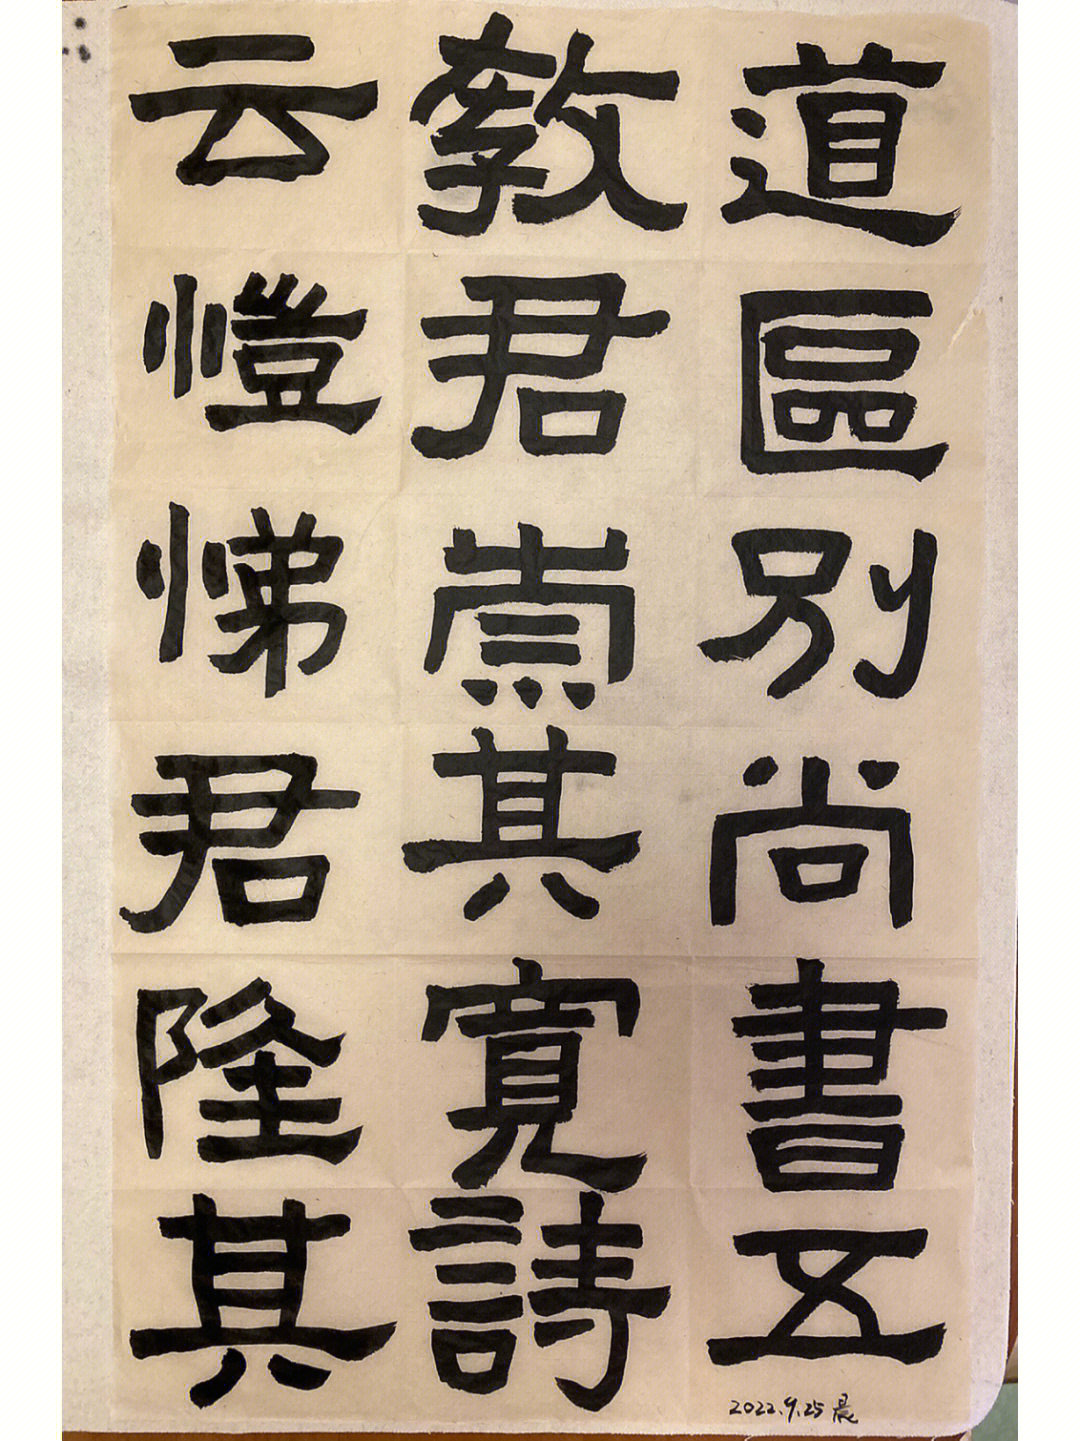 道區別尚書五
教君崇其寬詩
云愷悌君隆其
2022.9.25 晨